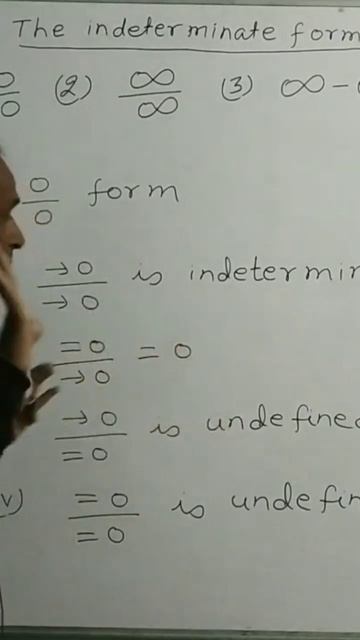 The indeterminate form
0/0 (2) ∞/∞ (3) ∞ -
0/0 form
→0/→0 is indetermin
=0/→0 = 0
→0/=0 is undefined
v) =0/=0 is undefin